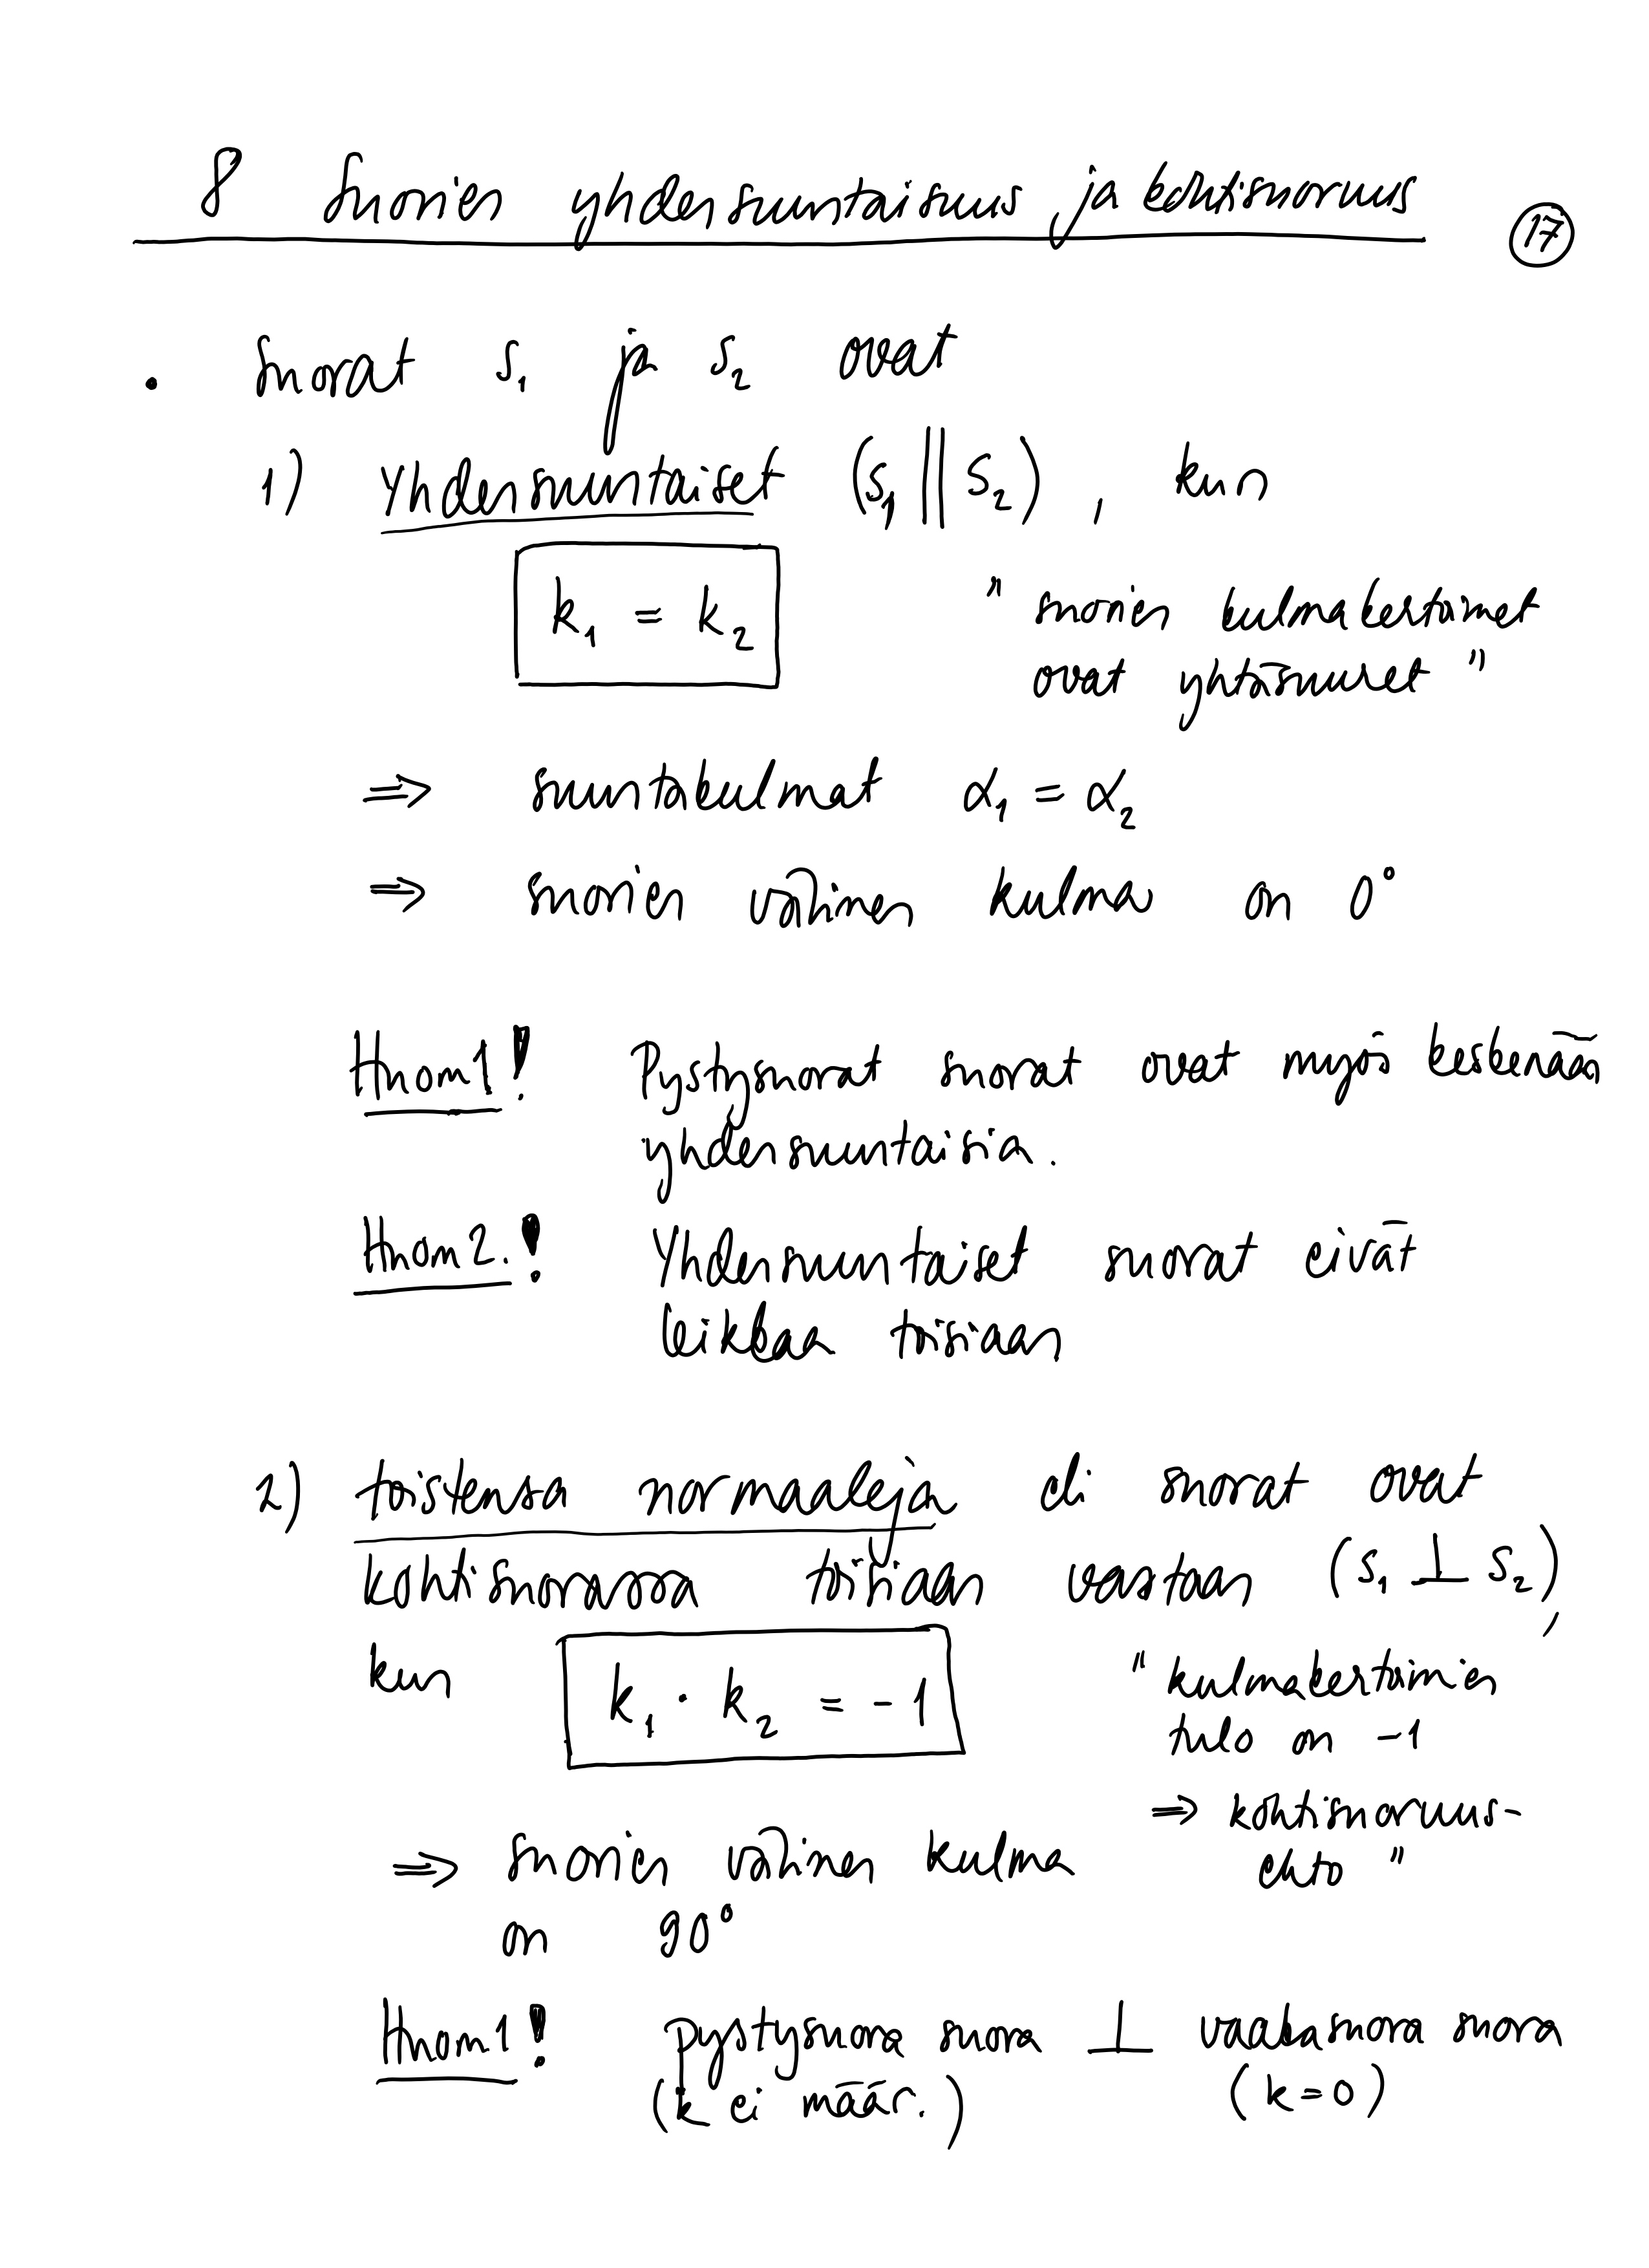 8 Suorien yhdensuuntaisuus ja kohtisuoruus
17
• Suorat s₁ ja s₂ ovat
1) Yhdensuuntaiset (s₁ || s₂), kun
k₁ = k₂
" suorien kulmakertoimet
ovat yhtäsuuret "
⇒ suuntakulmat α₁ = α₂
⇒ suorien välinen kulma on 0°
Huom1! Pystysuorat suorat ovat myös keskenään
yhdensuuntaisia.
Huom2.! Yhdensuuntaiset suorat eivät
leikkaa toisiaan
2) toistensa normaaleja eli suorat ovat
kohtisuorassa toisiaan vastaan (s₁ ⊥ s₂),
kun k₁ · k₂ = -1
" kulmakertoimien
tulo on -1
⇒ kohtisuoruus-
ehto "
⇒ suorien välinen kulma
on 90°
Huom1! Pystysuora suora ⊥ vaakasuora suora
(k ei määr.) (k=0)